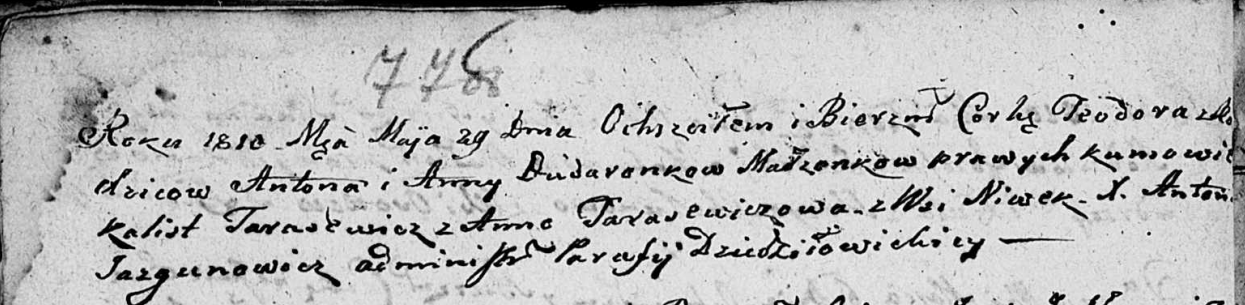 778
Roku 1810 Mça Maja 29 Dnia Ochszciłem i Bierzmł Corkę Teodora z Ro
dzicow Antona i Anny Dudaronkow Małzonkow prawych kumowie
Kalist Tarasewicz z Anno Tarasewiczowa z Wsi Niwek. X. Anton
Jazgunowicz administr Parafij Dziedziłowickiey